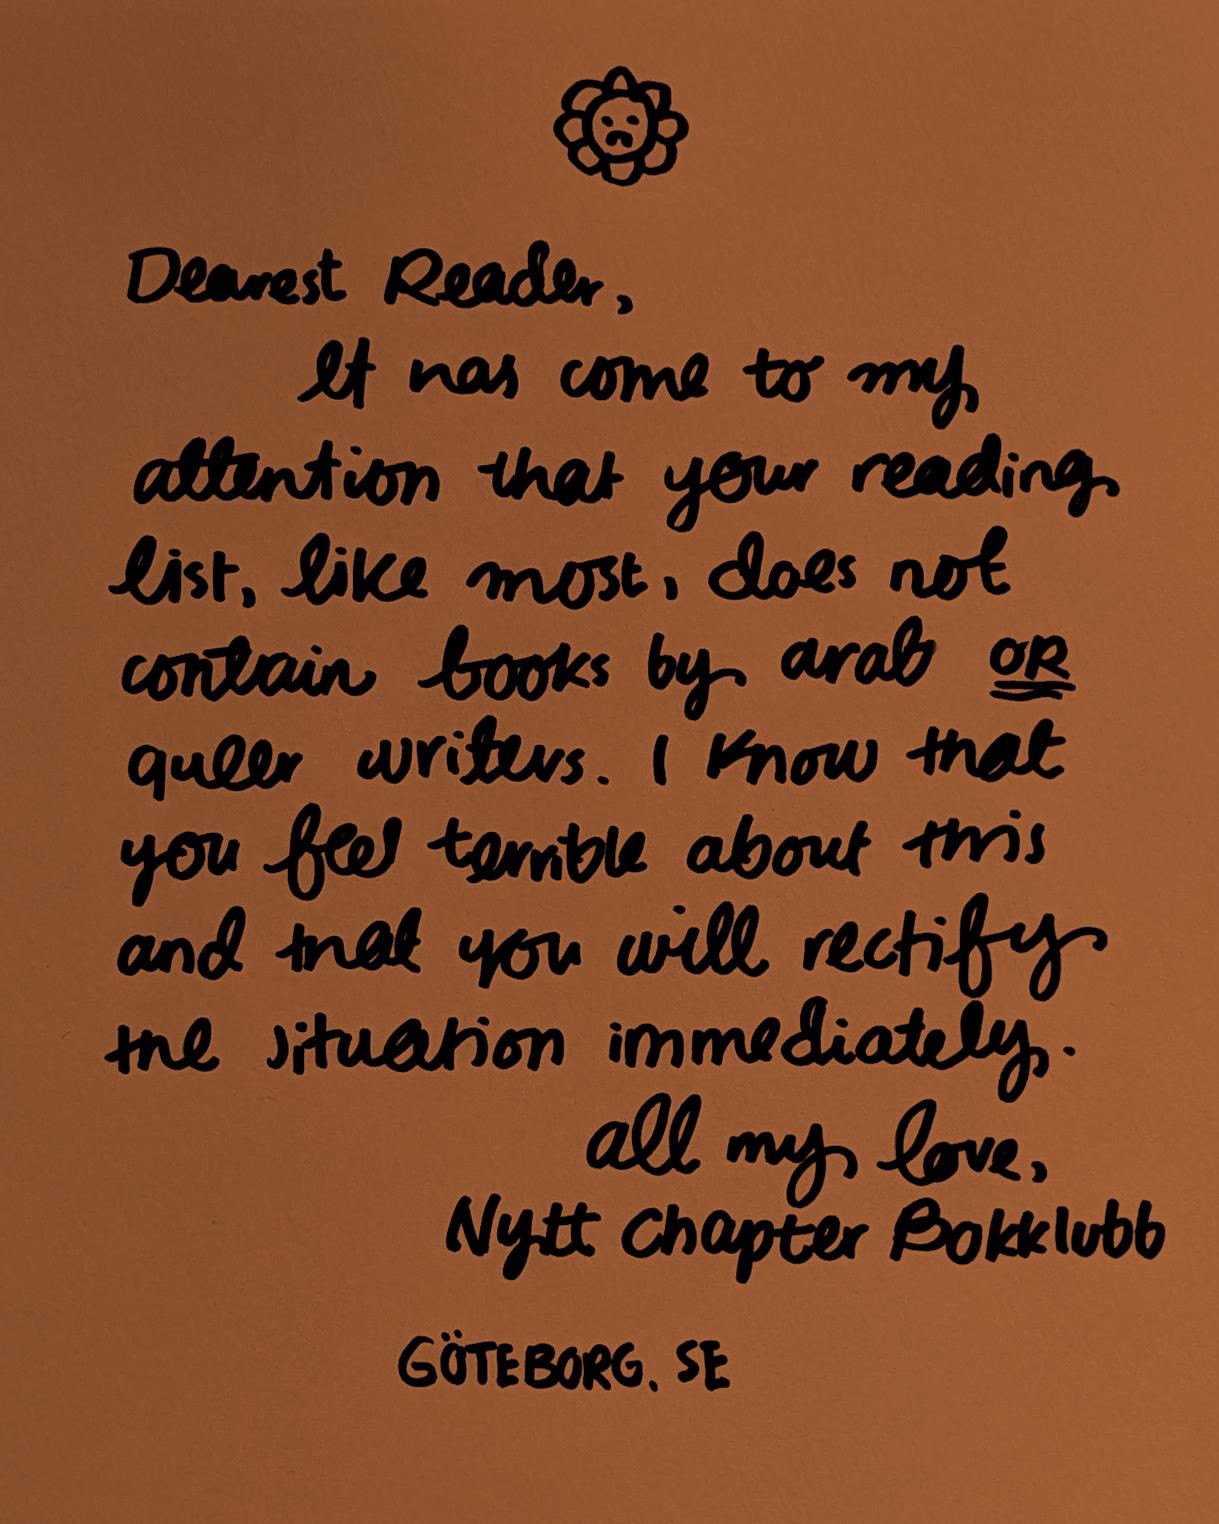 Dearest Reader,
It has come to my
attention that your reading
list, like most, does not
contain books by arab OR
queer writers. I know that
you feel terrible about this
and that you will rectify
the situation immediately.
all my love,
Nytt Chapter Bokklubb
GÖTEBORG. SE